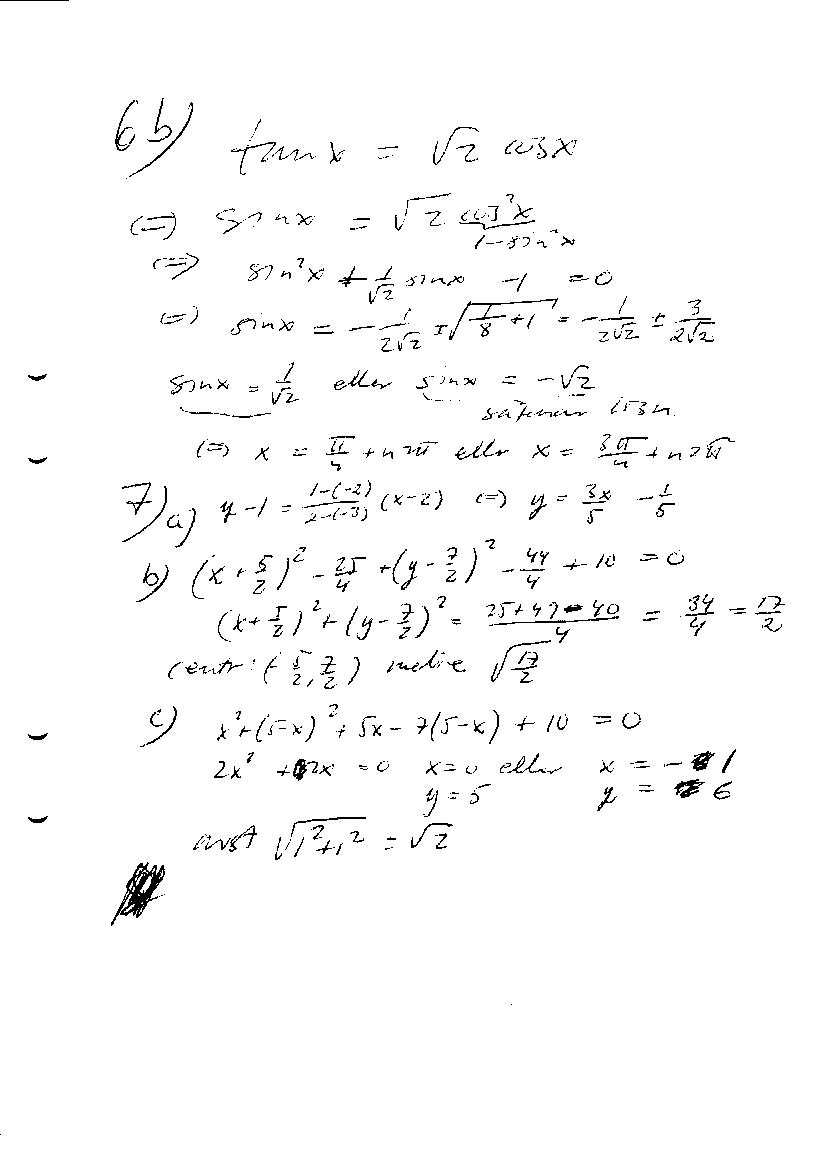 6b) tan x = √2 cos x
(=) sin x = √2 cos²x
1-sin²x
(=) sin²x + 1/√2 sin x - 1 = 0
(=) sin x = - 1/(2√2) ± √(1/8 + 1) = - 1/(2√2) ± 3/(2√2)
sin x = 1/√2 eller sin x = -√2
saknar lösn.
(=) x = π/4 + n2π eller x = 3π/4 + n2π
7) a) y - 1 = (1-(-2))/(2-(-3)) (x-2) (=) y = 3x/5 - 1/5
b) (x + 5/2)² - 25/4 + (y - 7/2)² - 49/4 + 10 = 0
(x + 5/2)² + (y - 7/2)² = (25+49-40)/4 = 34/4 = 17/2
centr: (-5/2, 7/2) radie √(17/2)
c) x² + (5-x)² + 5x - 7(5-x) + 10 = 0
2x² + 2x = 0 x = 0 eller x = -1
y = 5 y = 6
avst √(1²+1²) = √2